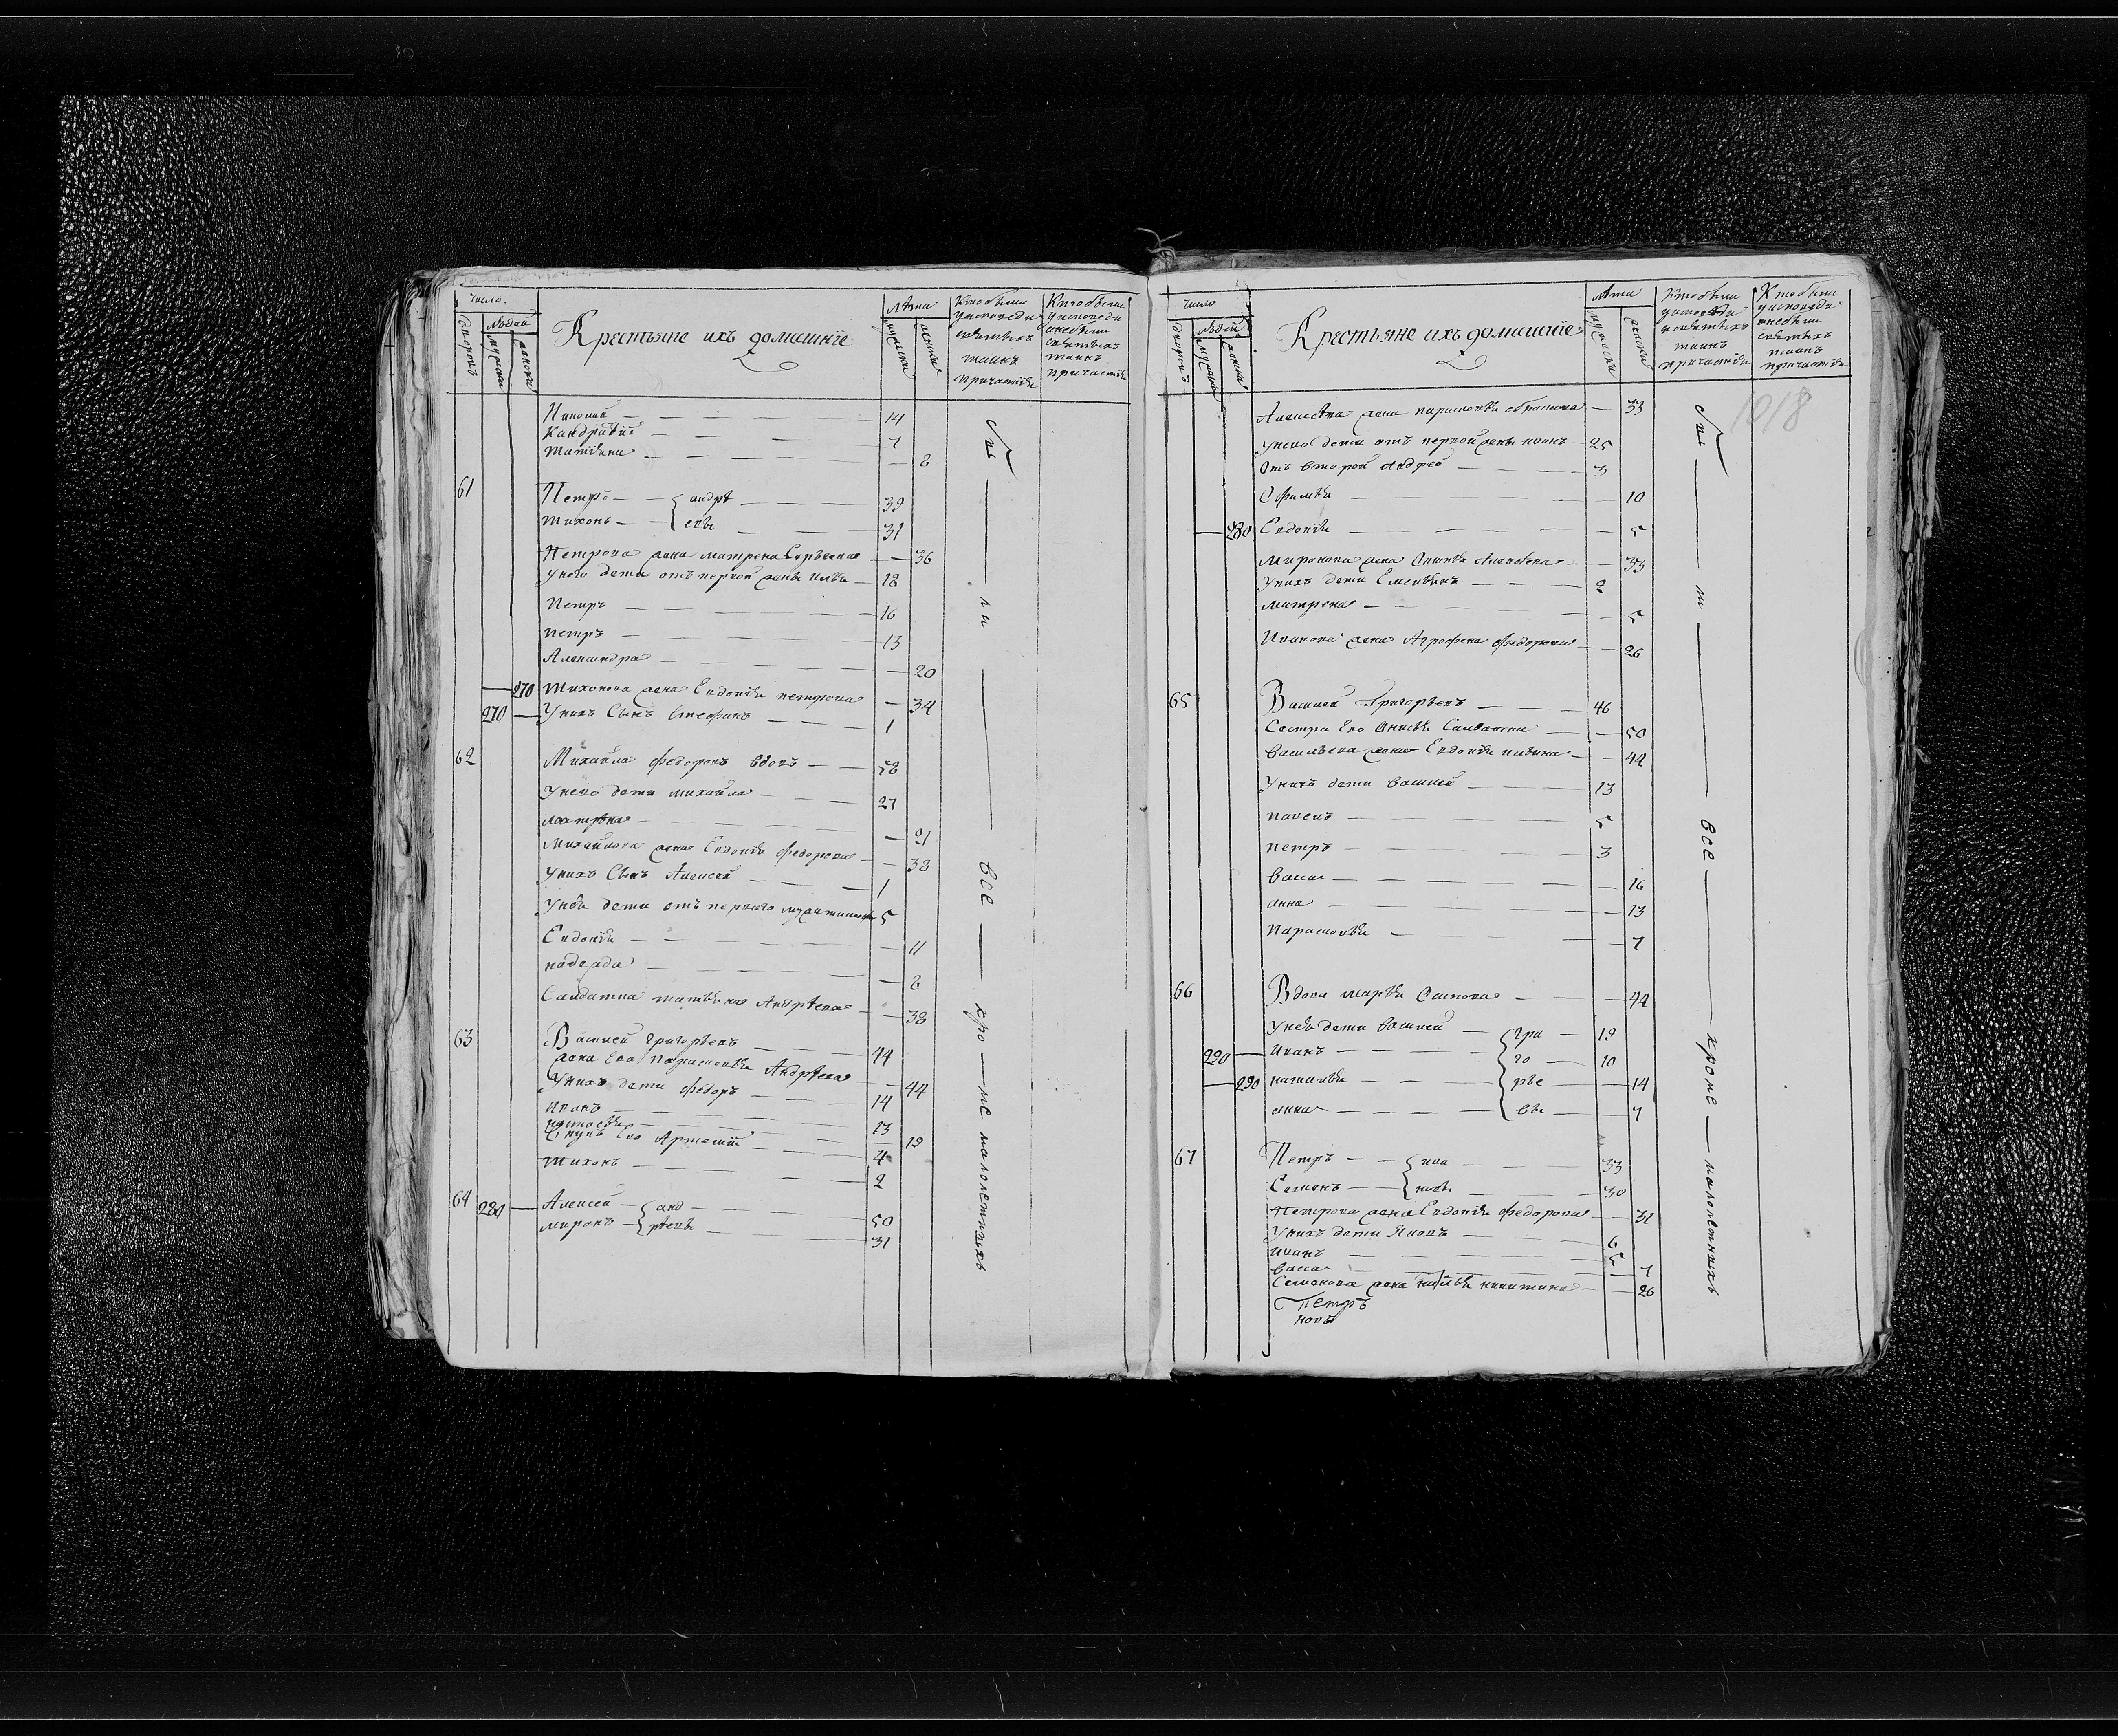 число.
людей
дворовъ
мужеска
женска
Крестьяне ихъ домашнїе
лѣта
мужеска
женска
Кто были
у исповеди
святыхъ
таинъ
причастія
Кто были
у исповеди
святыхъ
таинъ
причастія
Николай 14
Кандратїй 7
Татїяна 8
61 Петръ андрѣ 39
тихонъ евы 31
Петрова жена матрена 36
У него дети отъ первой жены илья 18
Петръ 16
петръ 13
Александра 20
270 тихонова жена Евдокія петрова 34
270 У нихъ Сынъ Стефанъ 1
62 Михайла федоровъ вдовъ 58
У него дети михайла 27
матрена 21
Михайлова жена Евдокія федорова 38
У нихъ Сынъ Алексей 1
У нея дети отъ перваго мужа 5
Евдокія 11
надежда 8
Салдатка татьяна Андрѣева 38
63 Василей григорьевъ 44
жена Ево парасковья Андрѣева 44
У нихъ дети федоръ 14
Иванъ 13
настасья 19
внукъ Ево Артемїй 4
тихонъ 2
64 280 Алексей анд 50
миронъ рѣевы 31
бы ли все кро ме малолетныхъ
число
людей
дворовъ
мужеска
женска
Крестьяне ихъ домашнїе
лѣта
мужеска
женска
Кто были
у исповеди
и святыхъ
таинъ
причастія
Кто были
у исповеди
святыхъ
таинъ
причастія
1018
Алексѣева жена парасковья 33
у него дети отъ первой жены иванъ 25
отъ второй андрей 3
Софилья 10
280 Евдокія 5
миронова жена 33
У нихъ дети Емельянъ 2
матрена 5
Иванова жена Агрофена федорова 26
65 Василей Григорьевъ 46
Сестра Ево Анисья Салдатка 50
Васильева жена Евдокія 44
У нихъ дети василей 13
павелъ 5
петръ 3
васса 16
анна 13
парасковья 7
66 Вдова марья Осипова 44
У нея дети василей гри 19
290 иванъ го 10
290 наталья рье 14
анна вы 7
67 Петръ ива 33
Семенъ новы 30
Петрова жена Евдокія федорова 31
У нихъ дети Яковъ 6
иванъ 5
васса 7
Семенова жена никитина 26
Петръ
бы ли все кроме малолетныхъ